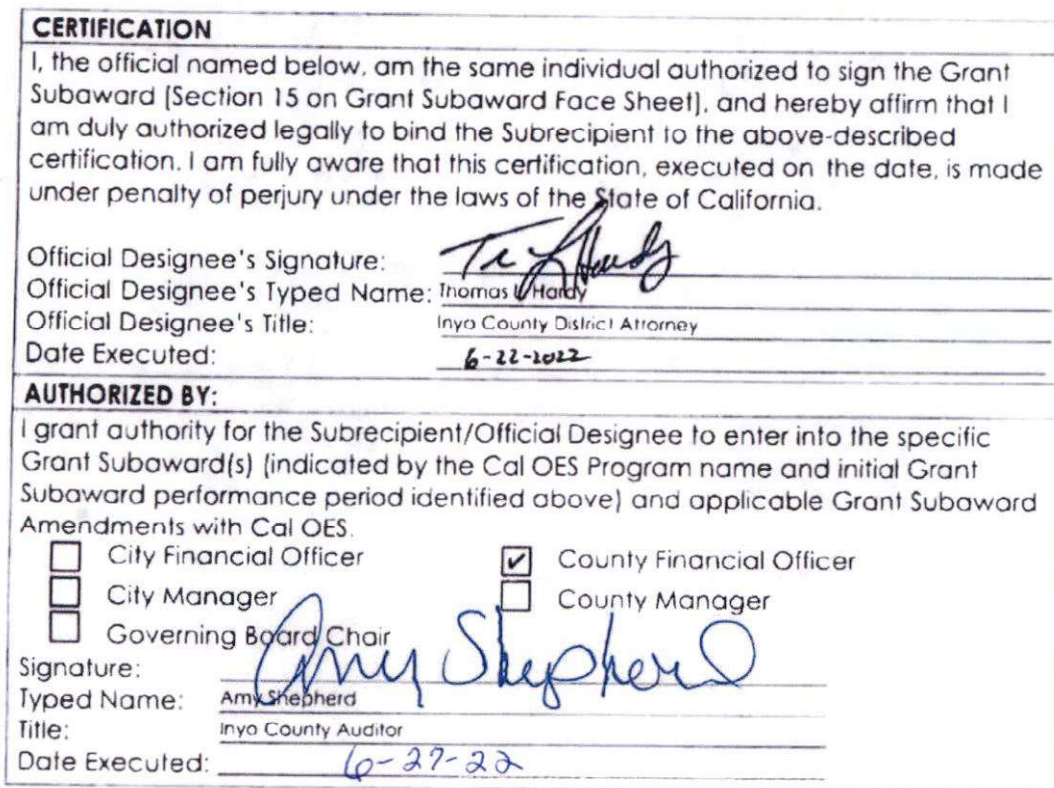 CERTIFICATION
I, the official named below, am the same individual authorized to sign the Grant
Subaward (Section 15 on Grant Subaward Face Sheet), and hereby affirm that I
am duly authorized legally to bind the Subrecipient to the above-described
certification. I am fully aware that this certification, executed on the date, is made
under penalty of perjury under the laws of the State of California.
Official Designee's Signature: T L Hardy
Official Designee's Typed Name: Thomas L Hardy
Official Designee's Title: Inyo County District Attorney
Date Executed: 6-22-2022
AUTHORIZED BY:
I grant authority for the Subrecipient/Official Designee to enter into the specific
Grant Subaward(s) (indicated by the Cal OES Program name and initial Grant
Subaward performance period identified above) and applicable Grant Subaward
Amendments with Cal OES.
City Financial Officer ✓ County Financial Officer
City Manager County Manager
Governing Board Chair
Signature: Amy Shepherd
Typed Name: Amy Shepherd
Title: Inyo County Auditor
Date Executed: 6-27-22